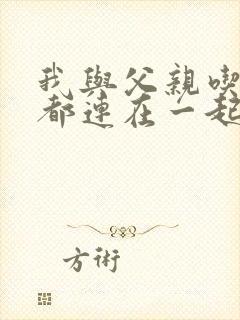 我與父親喫
都連在一起
方術